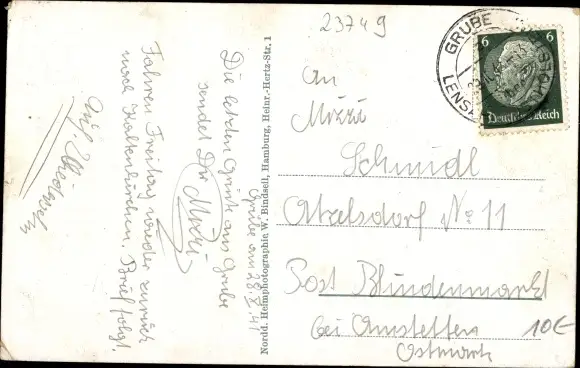 23749
GRUBE
LENSA
6 6
Deutsches Reich
An
Mizzi
Schmidl
Atzelsdorf No 11
Post Blindenmarkt
bei Amstetten
Ostmark
10€
Nordd. Heimphotographie W. Bindseil, Hamburg, Heinr.-Hertz-Str. 1
Grube am 28.
41
Die letzten Grüße aus Grube
sendet Dir
Mizzi
Fahren Freitag wieder zurück
nach Kaltenkirchen. Brief folgt.
Auf